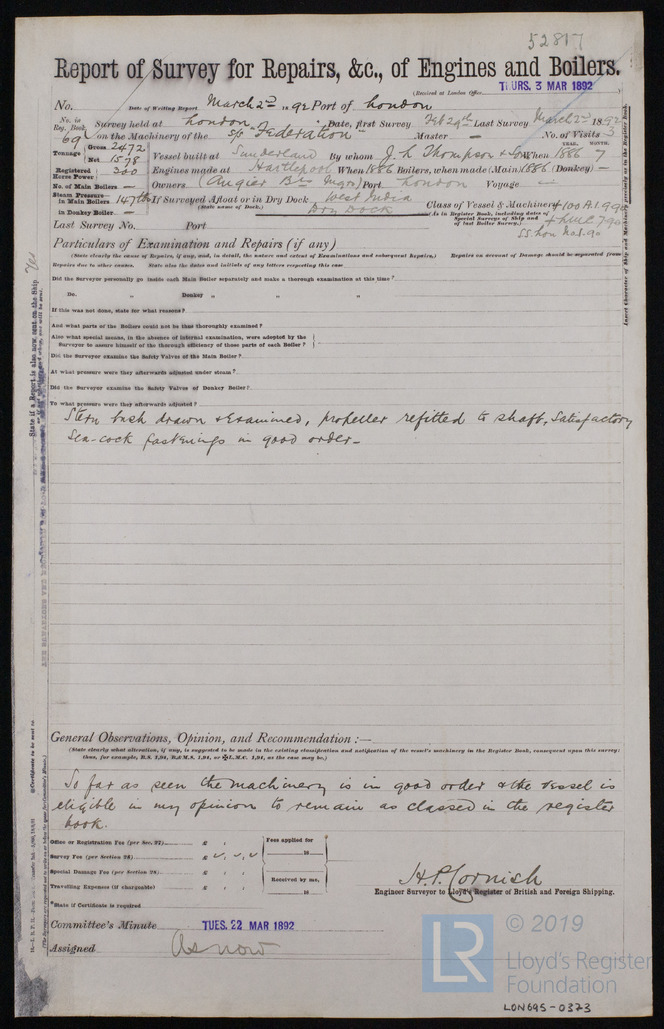 52817
Report of Survey for Repairs, &c., of Engines and Boilers.
(Received at London Office
THURS. 3 MAR 1892
No. Date of Writing Report March 2nd 1892 Port of London
No. in Reg. Book 69 Survey held at London Date, first Survey Feb 29th Last Survey March 2nd 1892
on the Machinery of the s/s "Federation" Master — No. of Visits 3
Tonnage Gross 2472 Net 1578
Vessel built at Sunderland By whom J. L. Thompson & Sons When 1886 7
YEAR. MONTH.
Registered Horse Power 200 Engines made at Hartlepool When 1886 Boilers, when made (Main) 1886 (Donkey) —
No. of Main Boilers — Owners (Angier Bros Mgrs) Port London Voyage —
Steam Pressure in Main Boilers 147 lbs If Surveyed Afloat or in Dry Dock West India Dry Dock
(State name of Dock.)
in Donkey Boiler —
Class of Vessel & Machinery +100A1.
(As in Register Book, including dates of Special Surveys of Ship and of last Boiler Survey.)
+LMC 7.90
SS Lon No.1.90
Last Survey No. Port
Particulars of Examination and Repairs (if any)
(State clearly the cause of Repairs, if any, and, in detail, the nature and extent of Examinations and subsequent Repairs.) Repairs on account of Damage should be separated from
Repairs due to other causes. State also the dates and initials of any letters respecting this case
Did the Surveyor personally go inside each Main Boiler separately and make a thorough examination at this time?
Do. „ Donkey „ „ „
If this was not done, state for what reasons?
And what parts of the Boilers could not be thus thoroughly examined?
Also what special means, in the absence of internal examination, were adopted by the
Surveyor to assure himself of the thorough efficiency of those parts of each Boiler?
Did the Surveyor examine the Safety Valves of the Main Boiler?
At what pressure were they afterwards adjusted under steam?
Did the Surveyor examine the Safety Valves of Donkey Boiler?
To what pressure were they afterwards adjusted?
Stern bush drawn & examined, propeller refitted to shaft, Satisfactory
Sea-cock fastenings in good order—
General Observations, Opinion, and Recommendation :—
(State clearly what alteration, if any, is suggested to be made in the existing classification and notification of the vessel's machinery in the Register Book, consequent upon this survey;
thus, for example, B.S. 1,91, B.&M.S. 1,91, or ✠L.M.C. 1,91, as the case may be.)
So far as seen the machinery is in good order & the vessel is
eligible in my opinion to remain as classed in the register
book.
Office or Registration Fee (per Sec. 27) £ : :
Survey Fee (per Section 28) £ : :
Special Damage Fee (per Section 28) £ : :
Travelling Expenses (if chargeable) £ : :
Fees applied for
18
Received by me,
18
*State if Certificate is required
H. P. Cornish
Engineer Surveyor to Lloyd's Register of British and Foreign Shipping.
Committee's Minute TUES. 22 MAR 1892
Assigned As now
Insert Character of Ship and Machinery precisely as in the Register Book.
State if a Report is also now sent on the Ship Yes
*Certificate to be sent to
LR
© 2019
Lloyd's Register
Foundation
LON695-0373